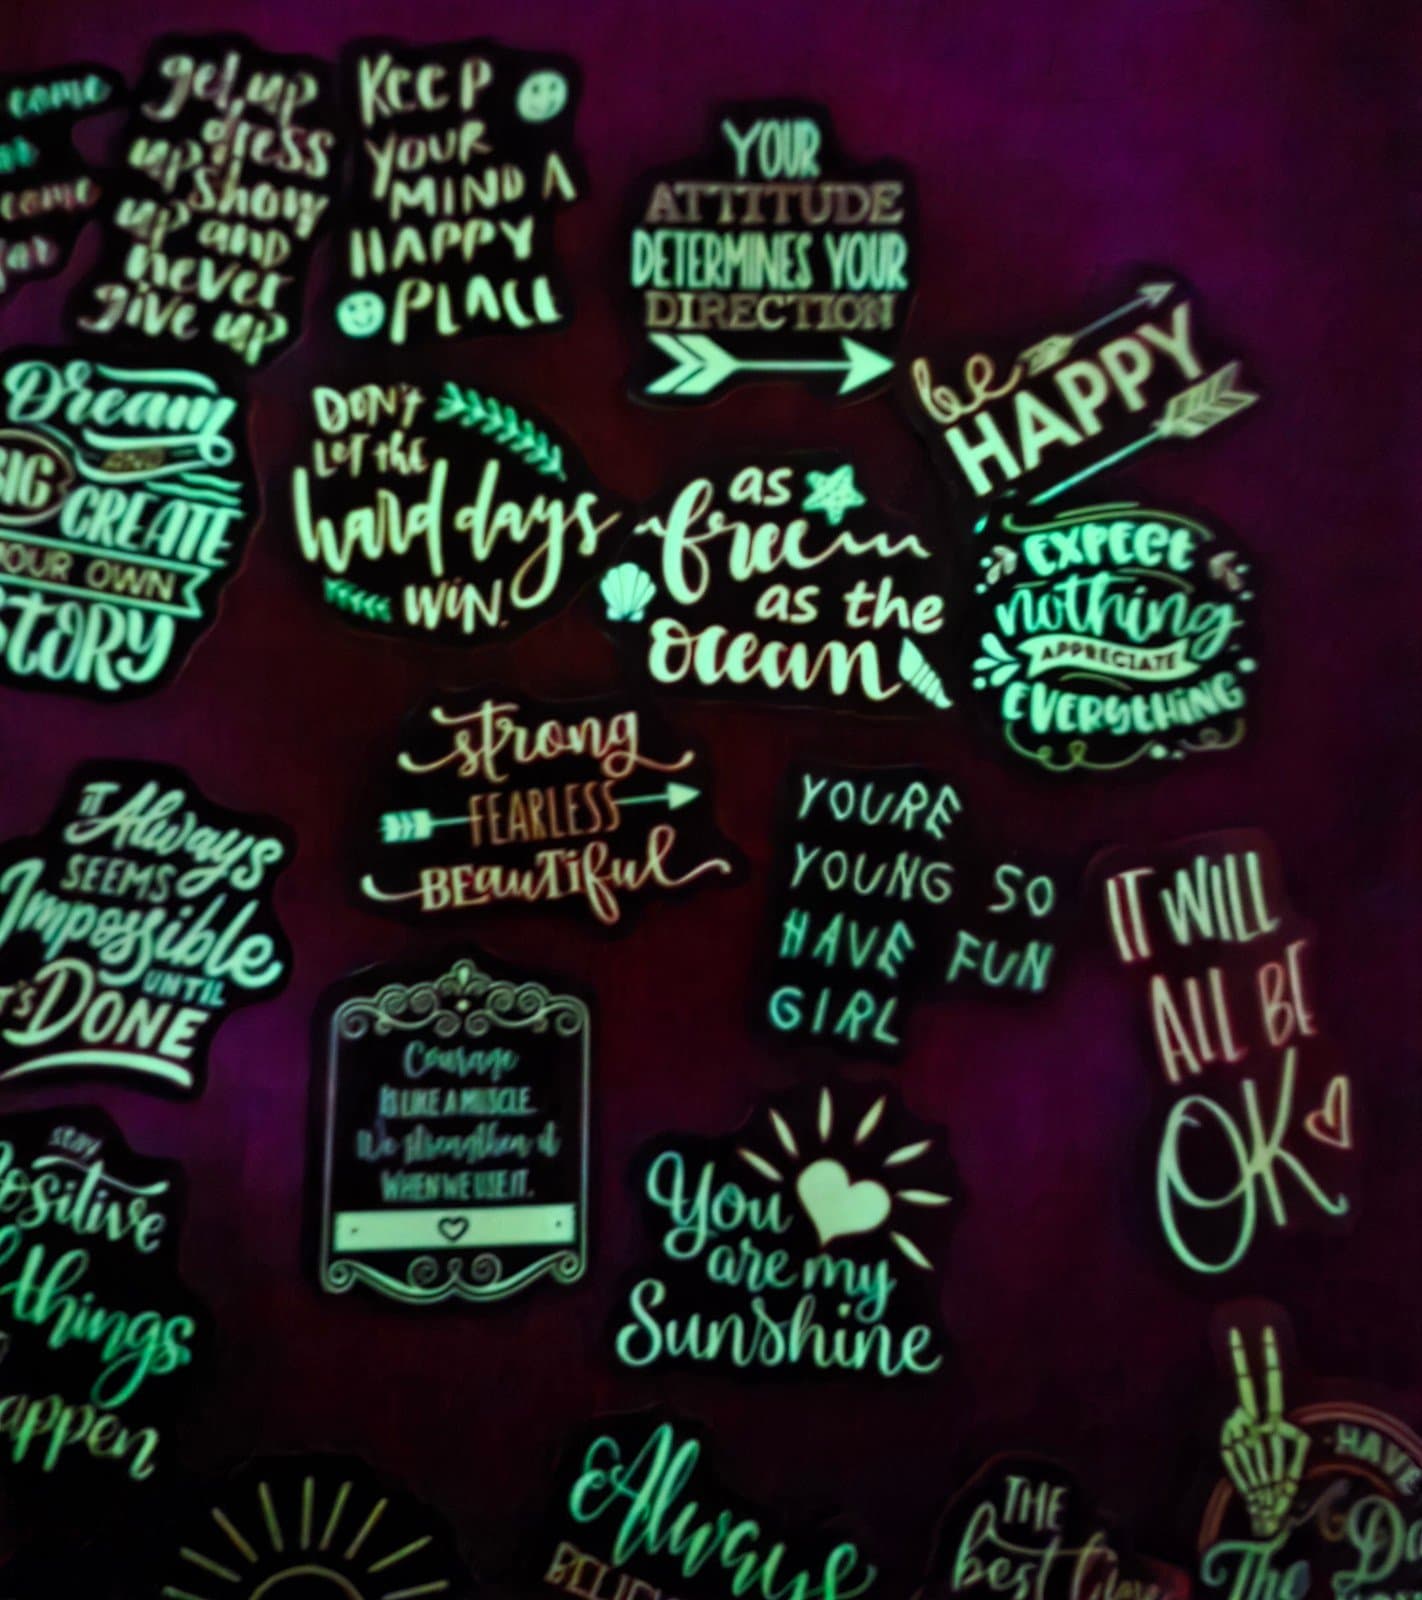 come
come
far
get up
dress
up show
up and
never
give up
KEEP
YOUR
MIND A
HAPPY
PLACE
YOUR
ATTITUDE
DETERMINES YOUR
DIRECTION
be
HAPPY
Dream
BIG
AND
CREATE
YOUR OWN
STORY
DON'T
LET the
hard days
WIN.
as
free
as the
ocean
EXPECT
nothing
APPRECIATE
EVERYTHING
strong
FEARLESS
BEAUTIFUL
IT Always
SEEMS
Impossible
UNTIL
IT'S DONE
YOURE
YOUNG SO
HAVE FUN
GIRL
IT WILL
ALL BE
OK
Courage
IS LIKE A MUSCLE.
We strengthen it
WHEN WE USE IT.
stay
Positive
things
happen
You
are my
Sunshine
Always
THE
best
HAVE
The